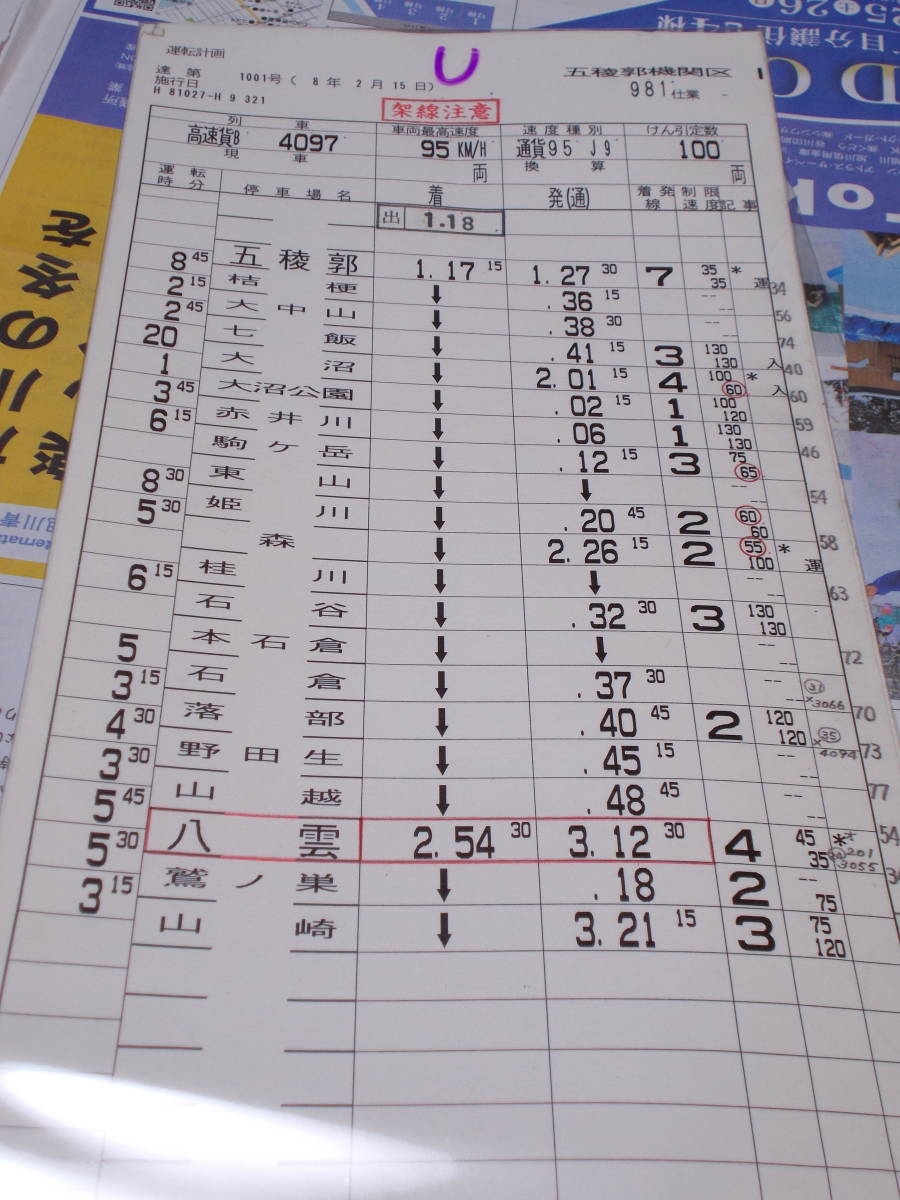 運転計画
達第 1001号( 8年 2月15日)
施行日
H 81027-H 9 321
五稜郭機関区
981仕業
架線注意
列車 車両最高速度 速度種別 けん引定数
高速貨B 4097 95 KM/H 通貨95 J9 100
現車 両 換算 両
運転時分 停車場名 着 発(通) 着発線 制限速度 記事
出 1.18
五稜郭 1.17 15 1.27 30 7 35 35 * 運
8 45 34
桔梗 ↓ .36 15 -- --
2 15 56
大中山 ↓ .38 30 -- --
2 45 74
七飯 ↓ .41 15 3 130 130 入
20 40
大沼 ↓ 2.01 15 4 100 60 * 入
1 60
大沼公園 ↓ .02 15 1 100 120
3 45 59
赤井川 ↓ .06 1 130 130
6 15 46
駒ケ岳 ↓ .12 15 3 75 65
東山 ↓ ↓ -- --
8 30 54
姫川 ↓ .20 45 2 60 60
5 30 58
森 ↓ 2.26 15 2 55 100 * 運
桂川 ↓ ↓ -- --
6 15 63
石谷 ↓ .32 30 3 130 130
本石倉 ↓ ↓ -- --
5 72
石倉 ↓ .37 30 -- --
31 ×3066
3 15 70
落部 ↓ .40 45 2 120 120
35 ×4094
4 30 73
野田生 ↓ .45 15 -- --
3 30 77
山越 ↓ .48 45 -- --
5 45 54
八雲 2.54 30 3.12 30 4 45 35 *
201
3055
5 30
鷲ノ巣 ↓ .18 2 -- 75
3 15
山崎 ↓ 3.21 15 3 75 120